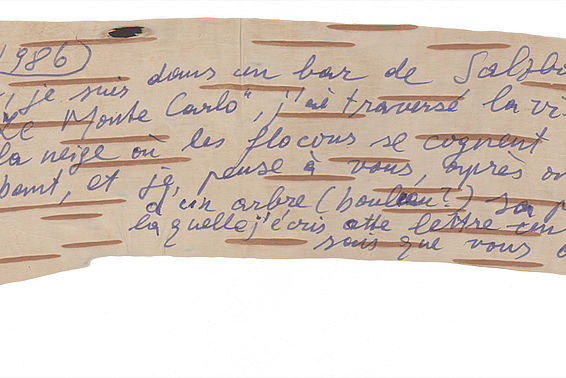 1986
, je suis dans un bar de Salzbo
"Le Monte Carlo", j'ai traversé la vi
la neige où les flocons se cognent
bant, et je pense à vous, après
d'un arbre (bouleau?) sa p
laquelle j'écris cette lettre
sais que vous